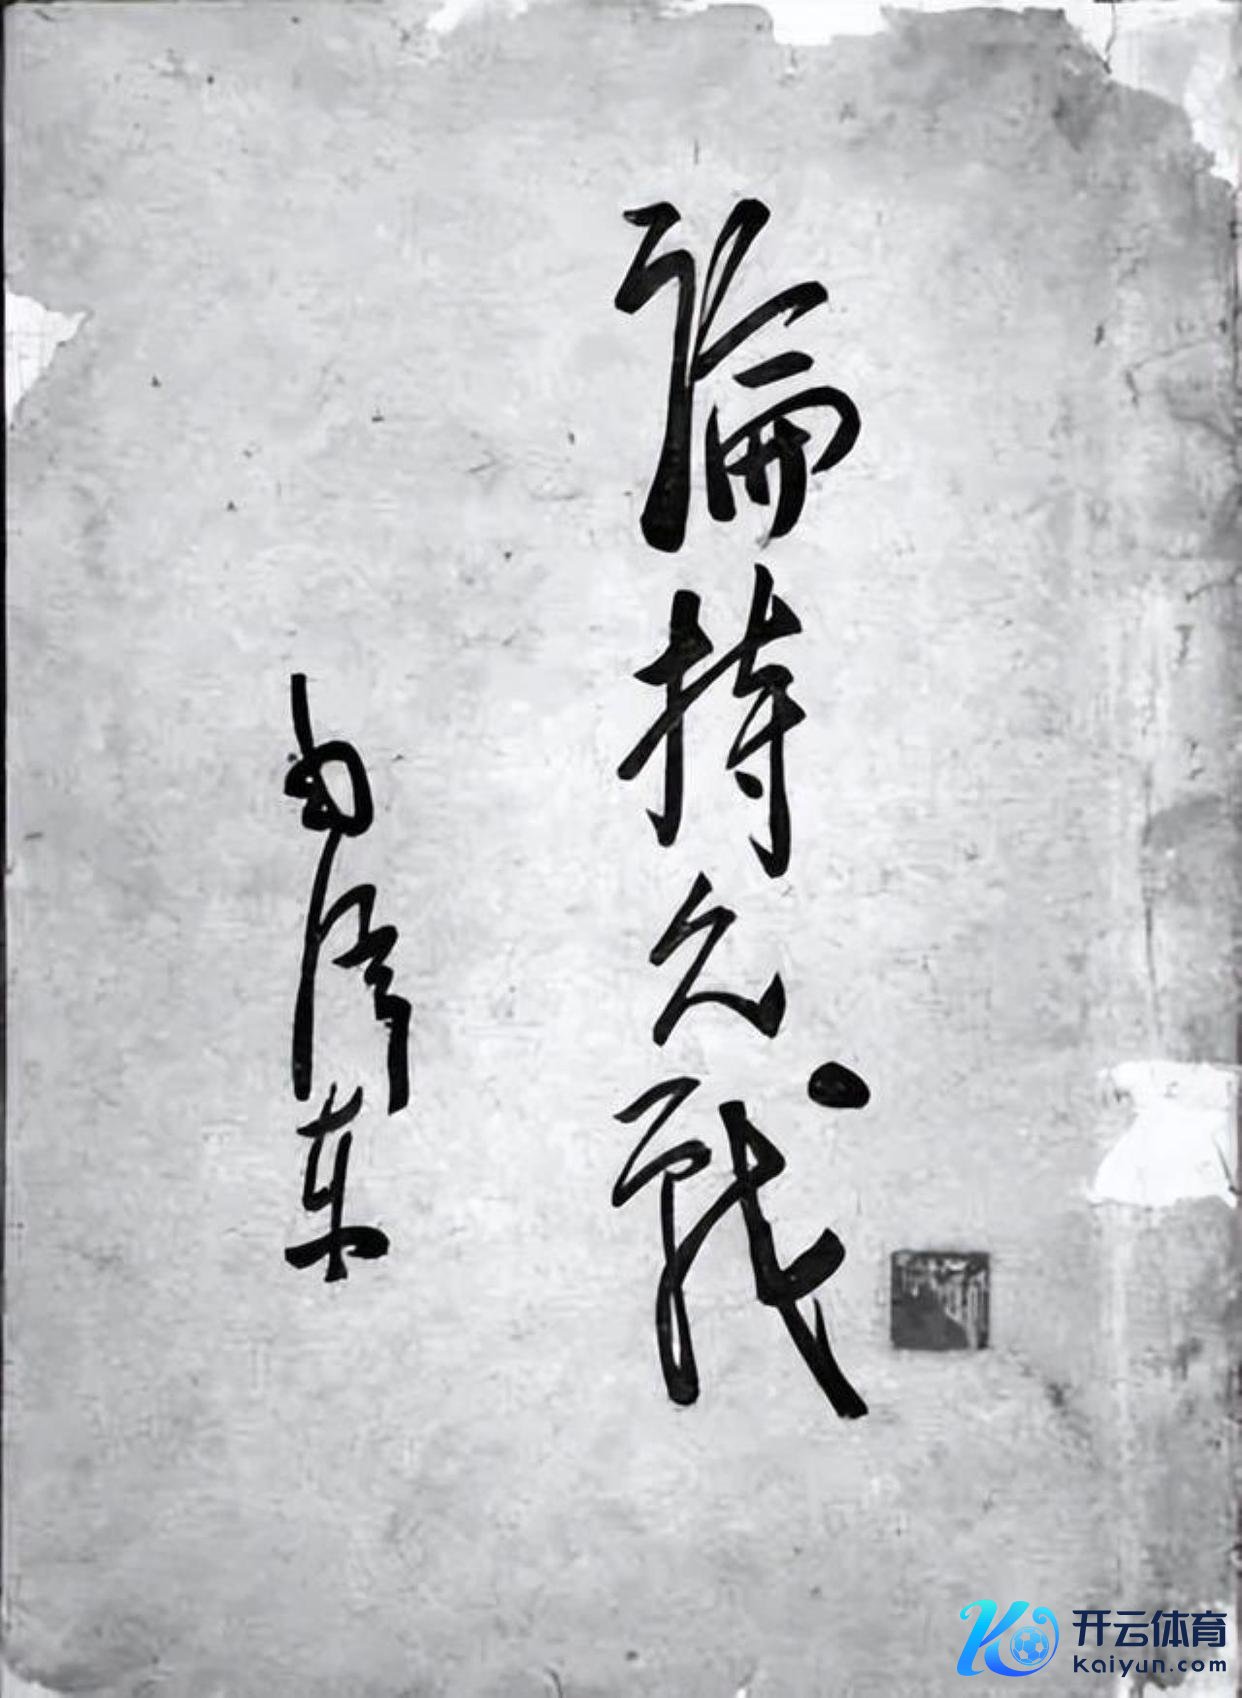 論持久戰
毛澤东
开云体育
kaiyun.com